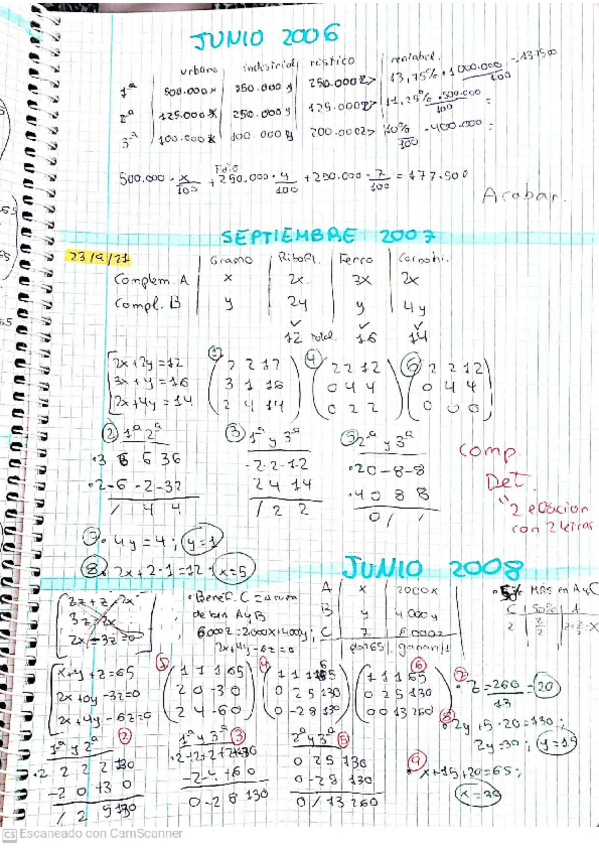 JUNIO 2006
urbano industrial rústico rentabil.
1ª 500.000x 250.000y 250.000z> 13,75% · 1000.000 = 137500
100
2ª 125.000x 250.000y 125.000z> 11,25% · 500.000 =
100
3ª 100.000x 100.000y 200.000z> 10% · 400.000 =
100
500.000 · x/100 + 250.000 · y/100 + 250.000 · z/100 = 177.500
Acabar.
SEPTIEMBRE 2007
23/9/21
Gramo Ribofl. Ferro Carnohi.
Complem. A x 2x 3x 2x
Compl. B y 2y y 4y
12 total. 16 14
2x+2y=12
3x+y=16
2x+4y=14
① 2 2 12
3 1 16
2 4 14
④ 2 2 12
0 4 4
0 2 2
⑥ 2 2 12
0 4 4
0 0 0
② 1ª 2ª
·3 6 6 36
·2-6-2-32
/ 4 4
③ 1ª y 3ª
-2-2-12
2 4 14
/ 2 2
⑤ 2ª y 3ª
·20-8-8
·40 8 8
0 / /
Comp.
Det.
"2 ecacion
con 2 letras
⑦ · 4y=4; y=1
⑧ · 2x+2·1=12 · x=5
JUNIO 2008
3z=2x
2x-3z=0
· Benef. C = a suma
de ben A y B
6000z=2000x+4000y
2x+4y-6z=0
A x 2000x
B y 4000y
C z 6000z
por 65 ganan
· 50% MÁS en A y C
C 50% A
x+y+z=65
2x+0y-3z=0
2x+4y-6z=0
1 1 1 65
2 0 -3 0
2 4 -6 0
④ 1 1 1 65
0 2 5 130
0 -2 8 130
⑥ 1 1 1 65
0 2 5 130
0 0 13 260
⑦ · z=260/13=20
⑧ · 2y+5·20=130;
2y=30; y=15
⑨ · x+15+20=65;
x=30
1ª y 2ª ②
·2 2 2 2 130
-2 0 +3 0
/ 2 5 130
1ª y 3ª ③
-2-4+6 0
0-2 8 130
2ª y 3ª ⑤
0 2 5 130
0-2 8 130
0 / 13 260
CS Escaneado con CamScanner